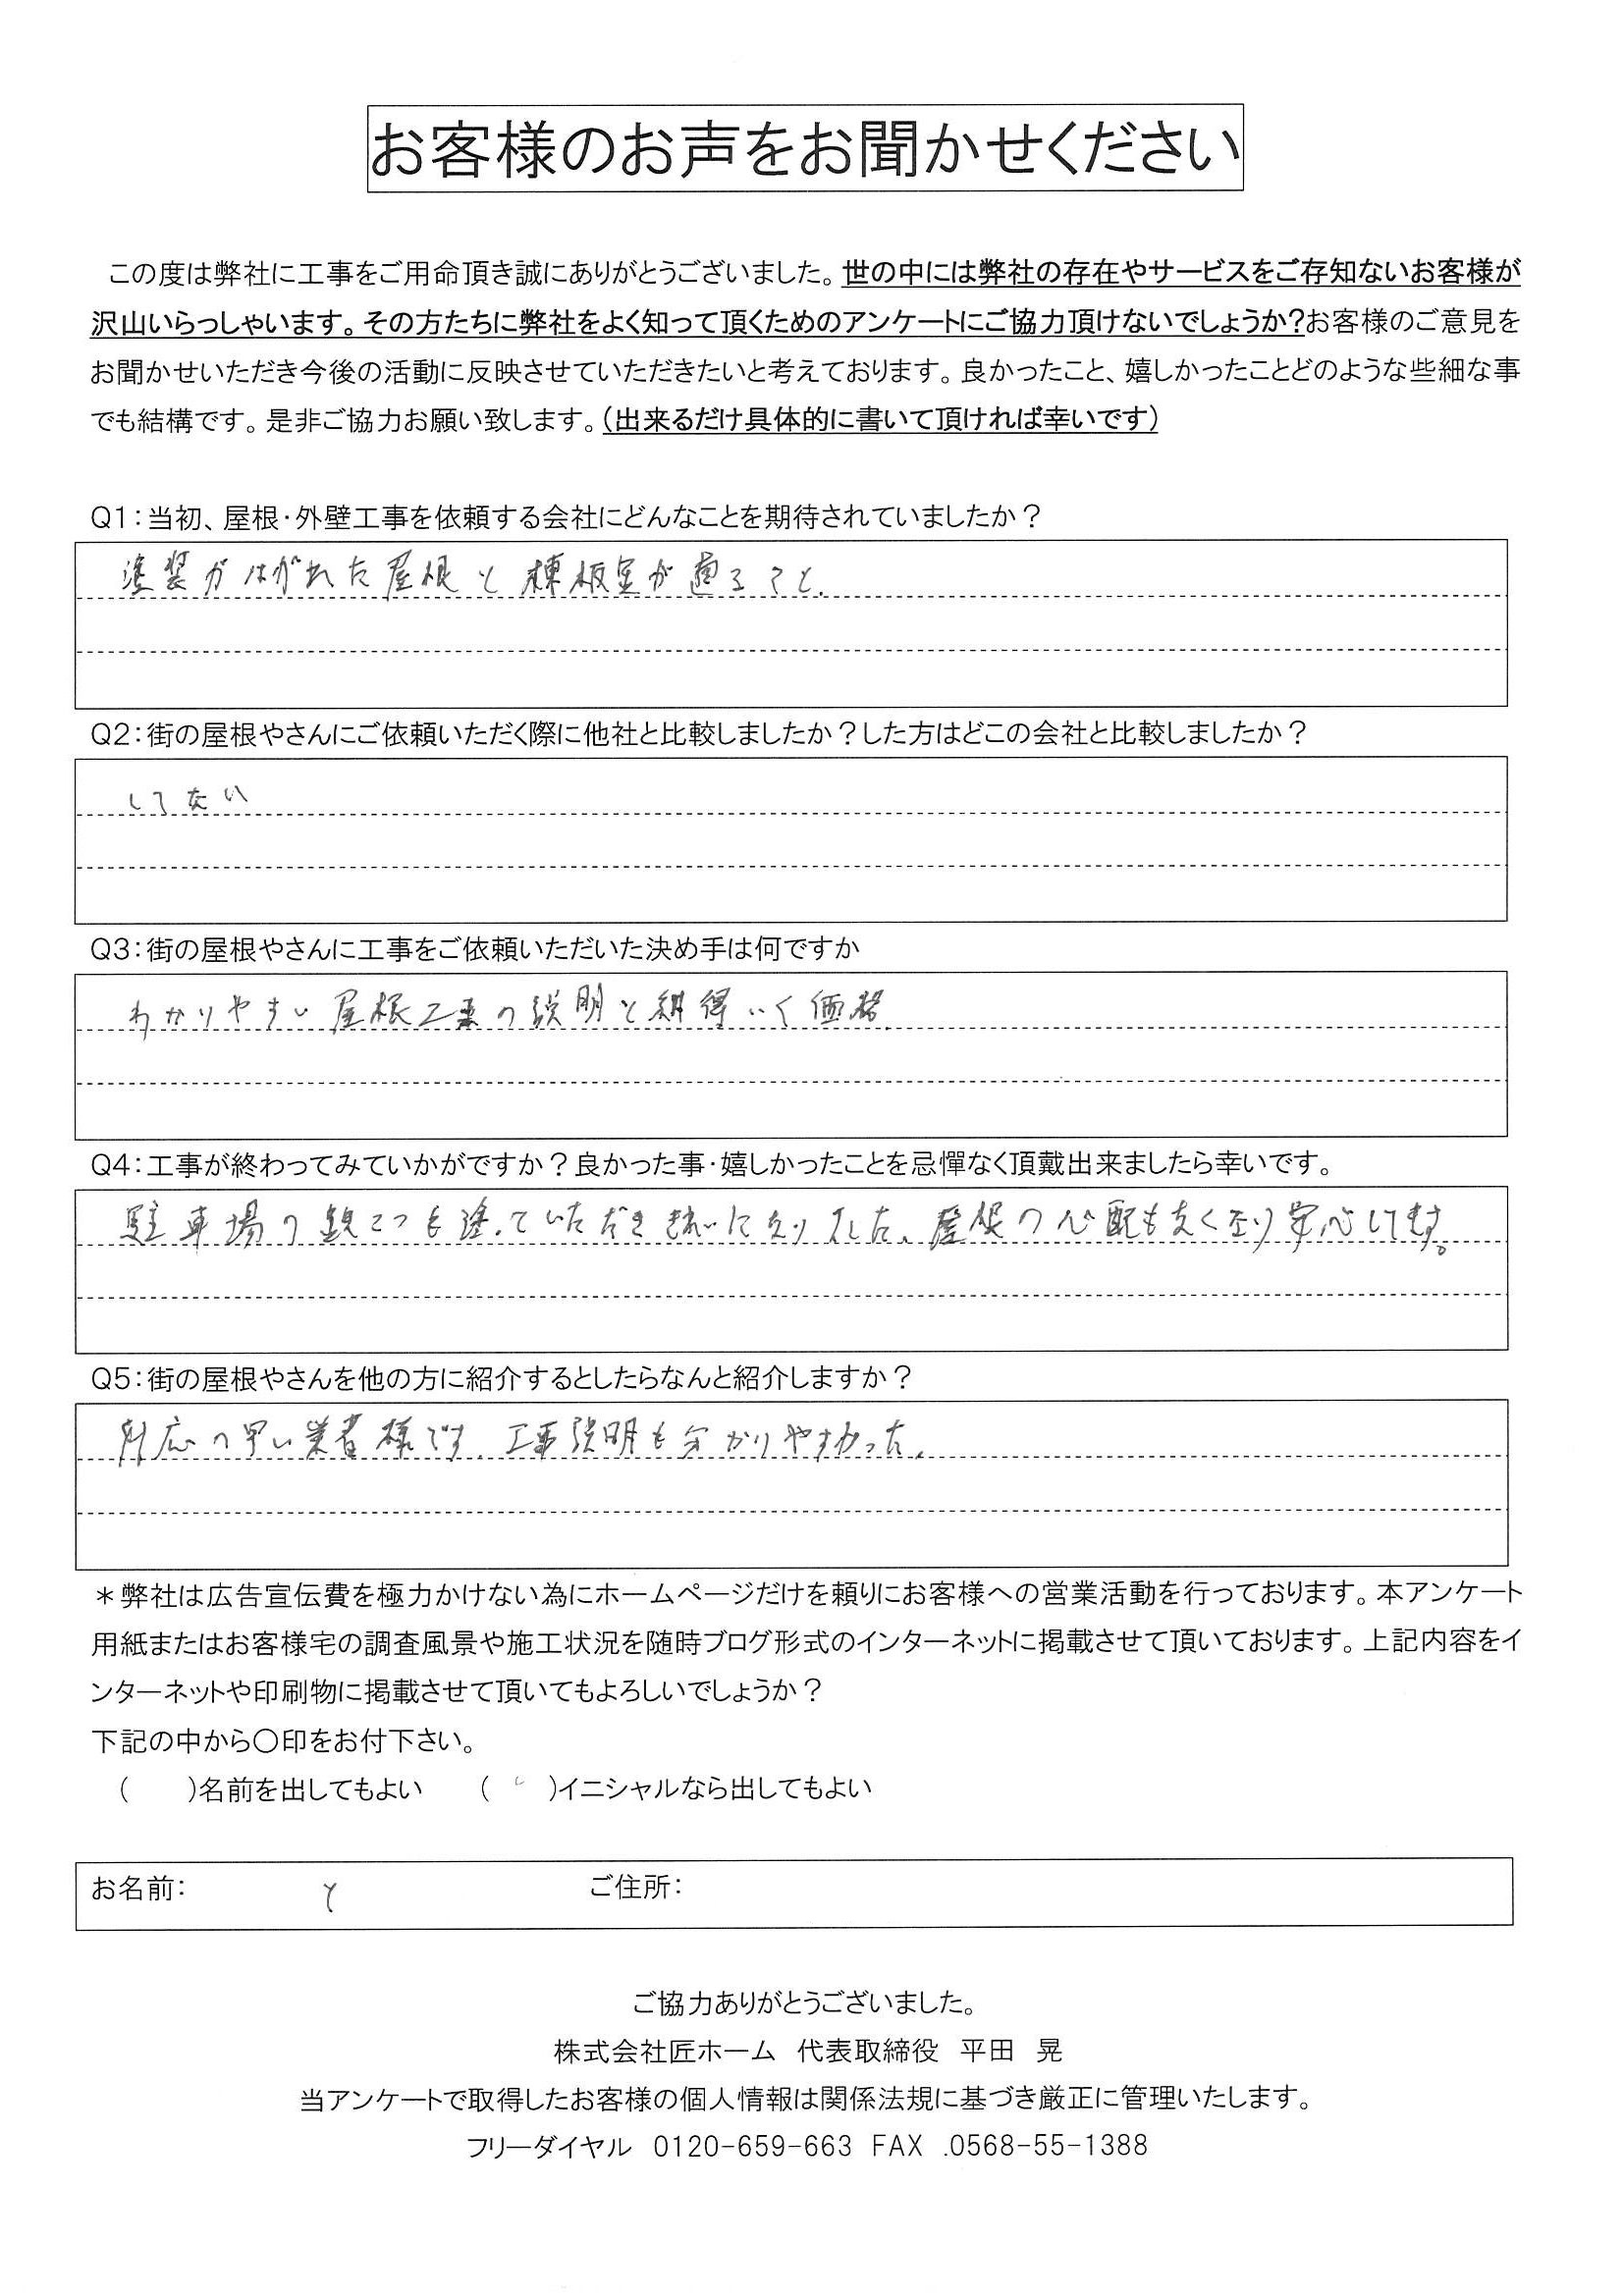 お客様のお声をお聞かせください
この度は弊社に工事をご用命頂き誠にありがとうございました。世の中には弊社の存在やサービスをご存知ないお客様が
沢山いらっしゃいます。その方たちに弊社をよく知って頂くためのアンケートにご協力頂けないでしょうか?お客様のご意見を
お聞かせいただき今後の活動に反映させていただきたいと考えております。良かったこと、嬉しかったことどのような些細な事
でも結構です。是非ご協力お願い致します。(出来るだけ具体的に書いて頂ければ幸いです)
Q1:当初、屋根・外壁工事を依頼する会社にどんなことを期待されていましたか?
塗装がはがれた屋根と棟板金が直ること.
Q2:街の屋根やさんにご依頼いただく際に他社と比較しましたか?した方はどこの会社と比較しましたか?
してない
Q3:街の屋根やさんに工事をご依頼いただいた決め手は何ですか
わかりやすい屋根工事の説明と納得いく価格.
Q4:工事が終わってみていかがですか?良かった事・嬉しかったことを忌憚なく頂戴出来ましたら幸いです。
駐車場の鉄こつも塗っていただききれいになりました。屋根の心配もなくなり安心してます。
Q5:街の屋根やさんを他の方に紹介するとしたらなんと紹介しますか?
対応の早い業者様です.工事説明も分かりやすかった.
*弊社は広告宣伝費を極力かけない為にホームページだけを頼りにお客様への営業活動を行っております。本アンケート
用紙またはお客様宅の調査風景や施工状況を随時ブログ形式のインターネットに掲載させて頂いております。上記内容をイ
ンターネットや印刷物に掲載させて頂いてもよろしいでしょうか?
下記の中から〇印をお付下さい。
( )名前を出してもよい ( )イニシャルなら出してもよい
お名前: ご住所:
ご協力ありがとうございました。
株式会社匠ホーム 代表取締役 平田 晃
当アンケートで取得したお客様の個人情報は関係法規に基づき厳正に管理いたします。
フリーダイヤル 0120-659-663 FAX .0568-55-1388